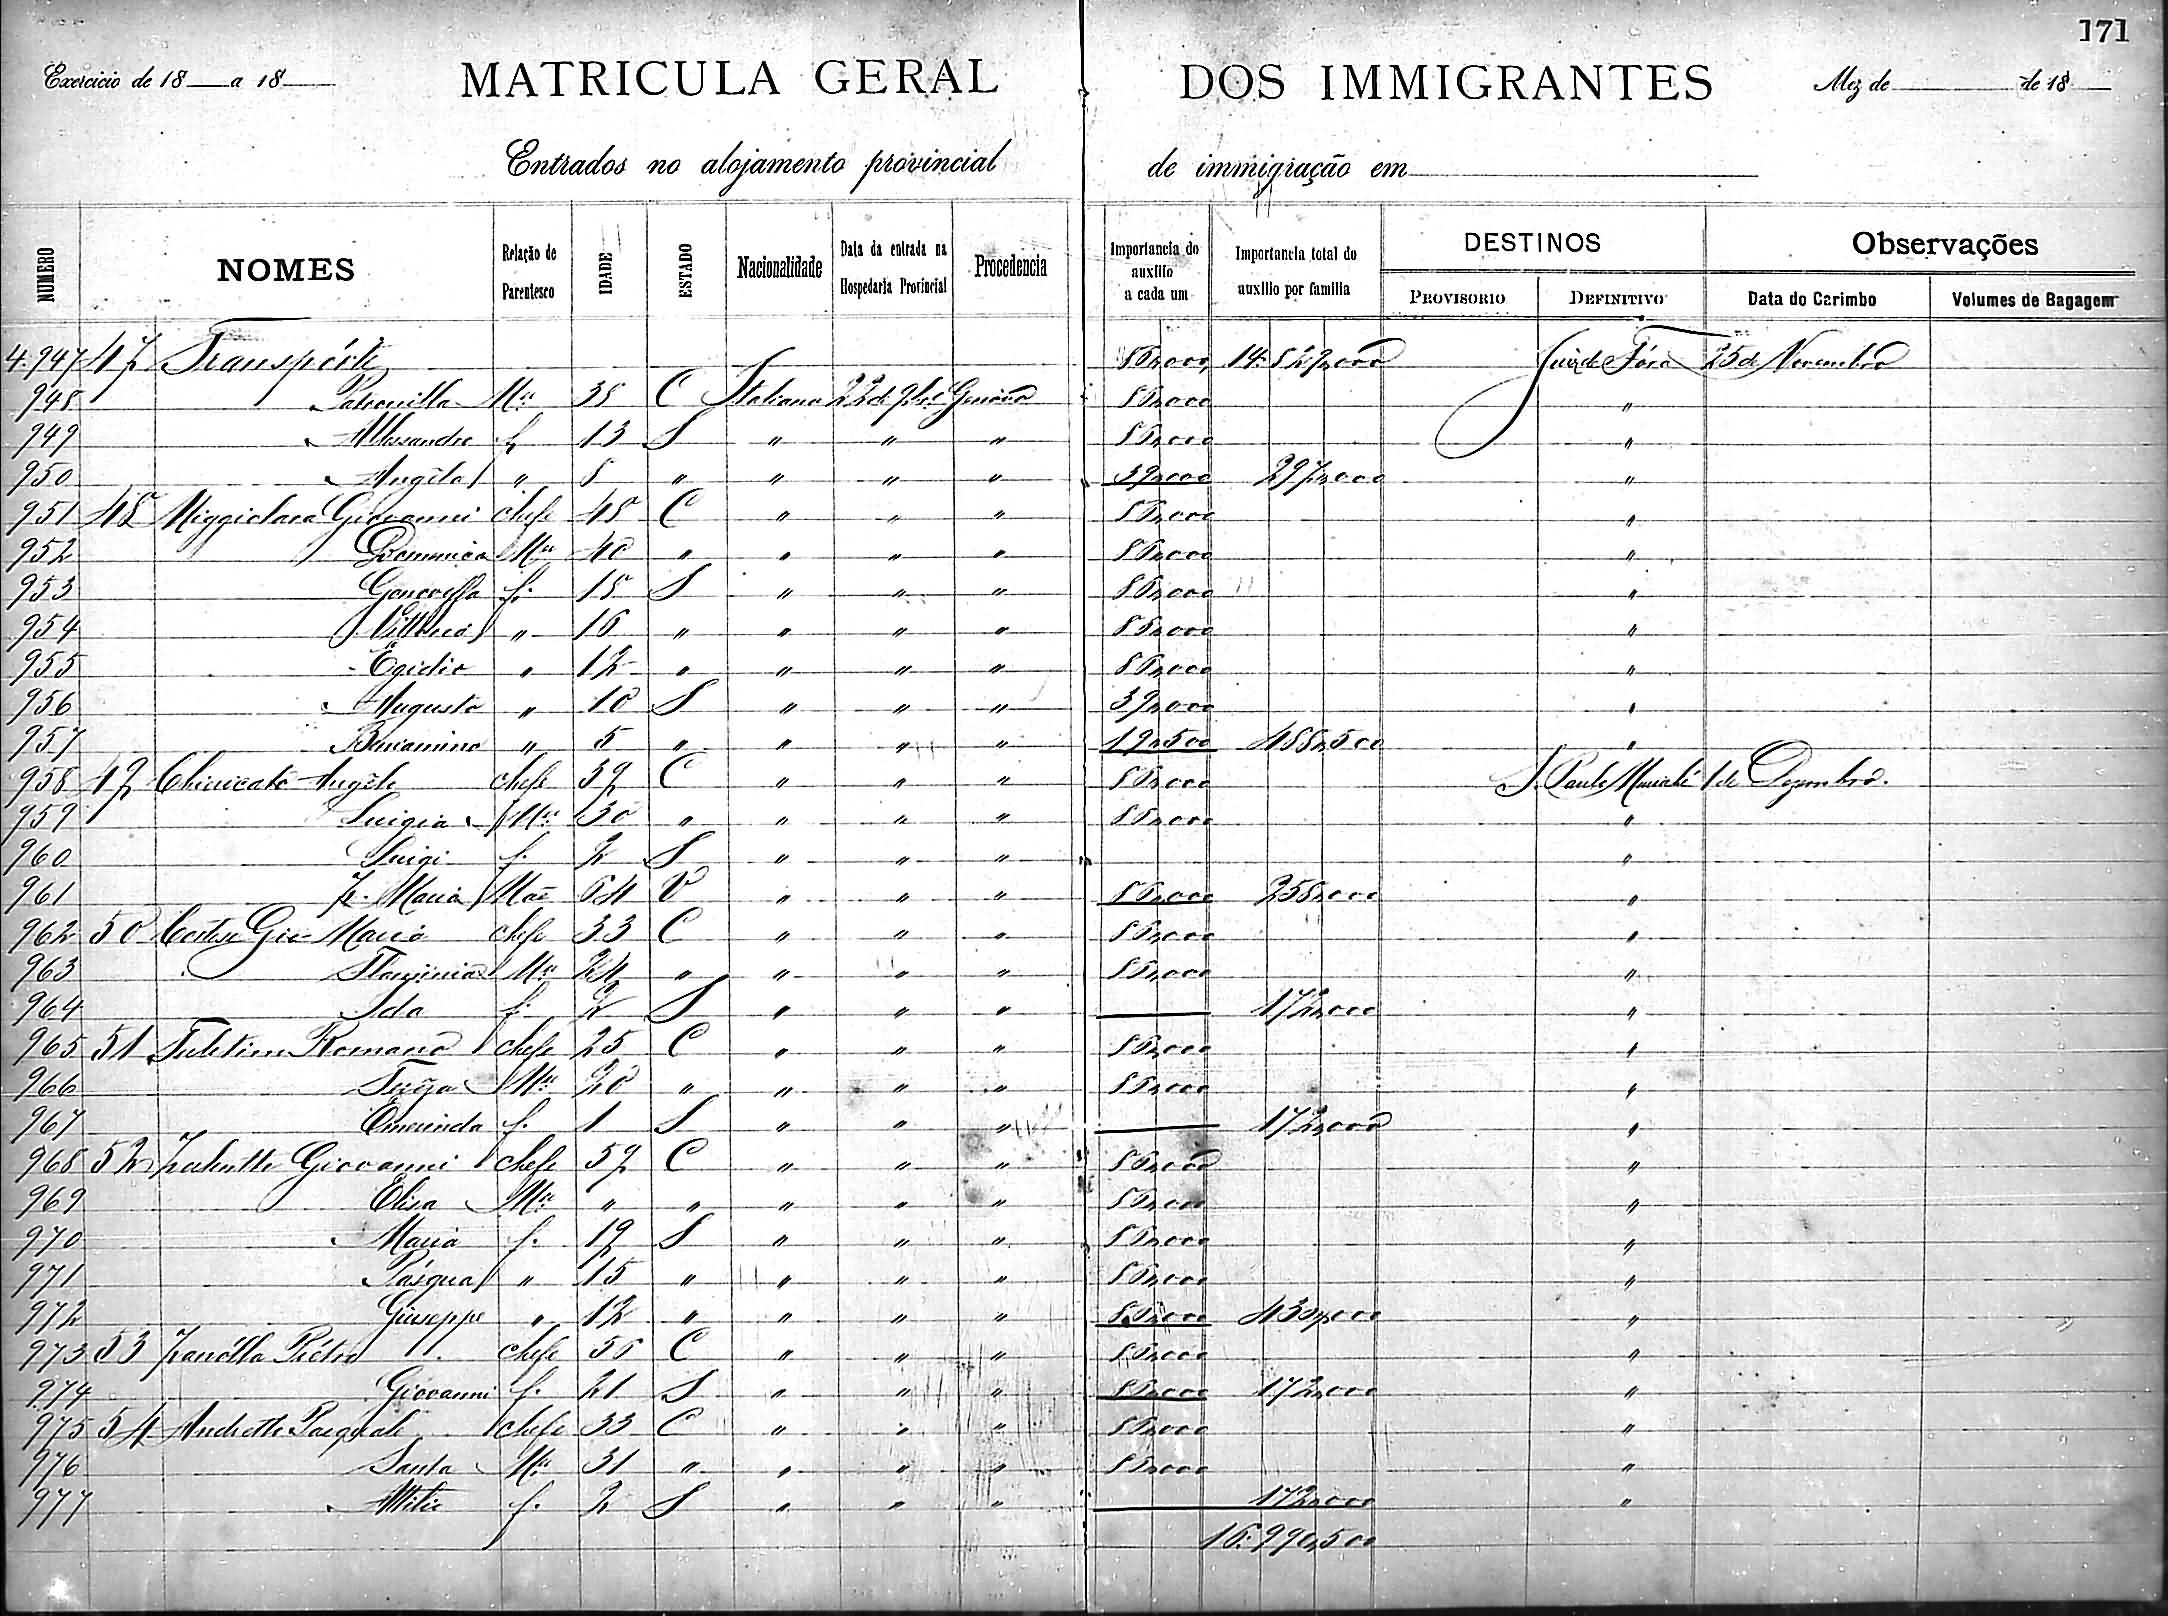 171
Exercicio de 18 a 18 MATRICULA GERAL DOS IMMIGRANTES Mez de de 18
Entrados no alojamento provincial de immigração em
NUMERO NOMES Relação de Parentesco IDADE ESTADO Nacionalidade Data da entrada na Hospedaria Provincial Procedencia Importancia do auxilio a cada um Importancia total do auxilio por familia DESTINOS PROVISORIO DEFINITIVO Observações Data do Carimbo Volumes de Bagagem
4.947 47 Transpórte 86,000 14:529,000 Juiz de Fóra 25 de Novembro
948 Petronilla Mer 38 C Italiana 22 de 9bro Genova 86,000 "
949 Alessandro f. 13 S " " " 86,000 "
950 Angelo " 8 " " " " 39,000 297,000 "
951 48 Giovanni chefe 48 C " " " 86,000 "
952 Domenica Mer 40 " " " " 86,000 "
953 f. 18 S " " " 86,000 "
954 " 16 " " " " 86,000 "
955 Egidio " 12 " " " " 86,000 "
956 Augusto " 10 S " " " 39,000 "
957 Beniamino " 5 " " " " 19,500 488,500 "
958 49 Angelo chefe 39 C " " " 86,000 S. Paulo Muriahé 1 de Dezembro.
959 Luigia Mer 30 " " " " 86,000 "
960 Luigi f. 2 S " " " "
961 Maria Mãe 64 V " " " 86,000 258,000 "
962 50 Cortese Gio Maria chefe 33 C " " " 86,000 "
963 Flaminia Mer 24 " " " " 86,000 "
964 Ida f. 2 S " " " 172,000 "
965 51 Romano chefe 25 C " " " 86,000 "
966 Mer 20 " " " " 86,000 "
967 Erminda f. 1 S " " " 172,000 "
968 52 Giovanni chefe 59 C " " " 86,000 "
969 Elisa Mer " " " " " 86,000 "
970 Maria f. 19 S " " " 86,000 "
971 Pasqua " 15 " " " " 86,000 "
972 Giuseppe " 12 " " " " 86,000 430,000 "
973 53 Zanella Pietro chefe 56 C " " " 86,000 "
974 Giovanni f. 21 S " " " 86,000 172,000 "
975 54 Pasquale chefe 33 C " " " 86,000 "
976 Santa Mer 31 " " " " 86,000 "
977 Attilio f. 2 S " " " 172,000 "
16:990,500